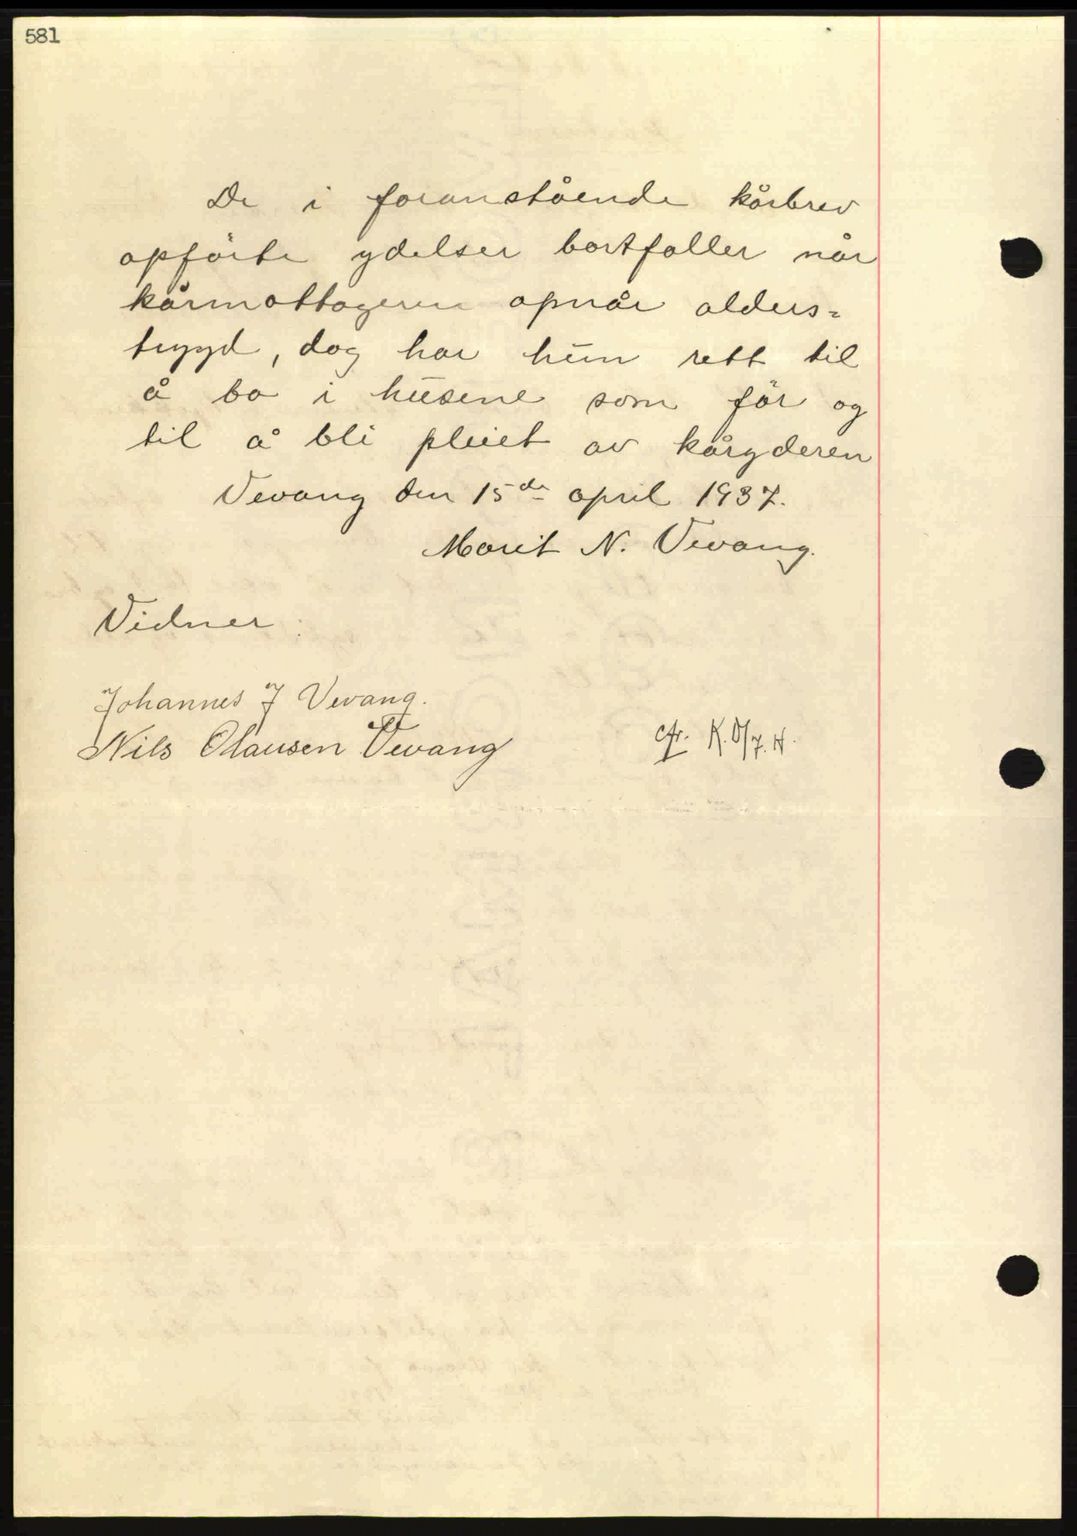 581
De i foranstående kårbrev
opførte ydelser bortfaller når
kårmottageren opnår alders=
trygd, dog har hun rett til
å bo i husene som før og
til å bli pleiet av kåryderen
Vevang den 15de april 1937.
Marit N. Vevang.
Vidner:
Johannes J Vevang.
Nils Olausen Vevang